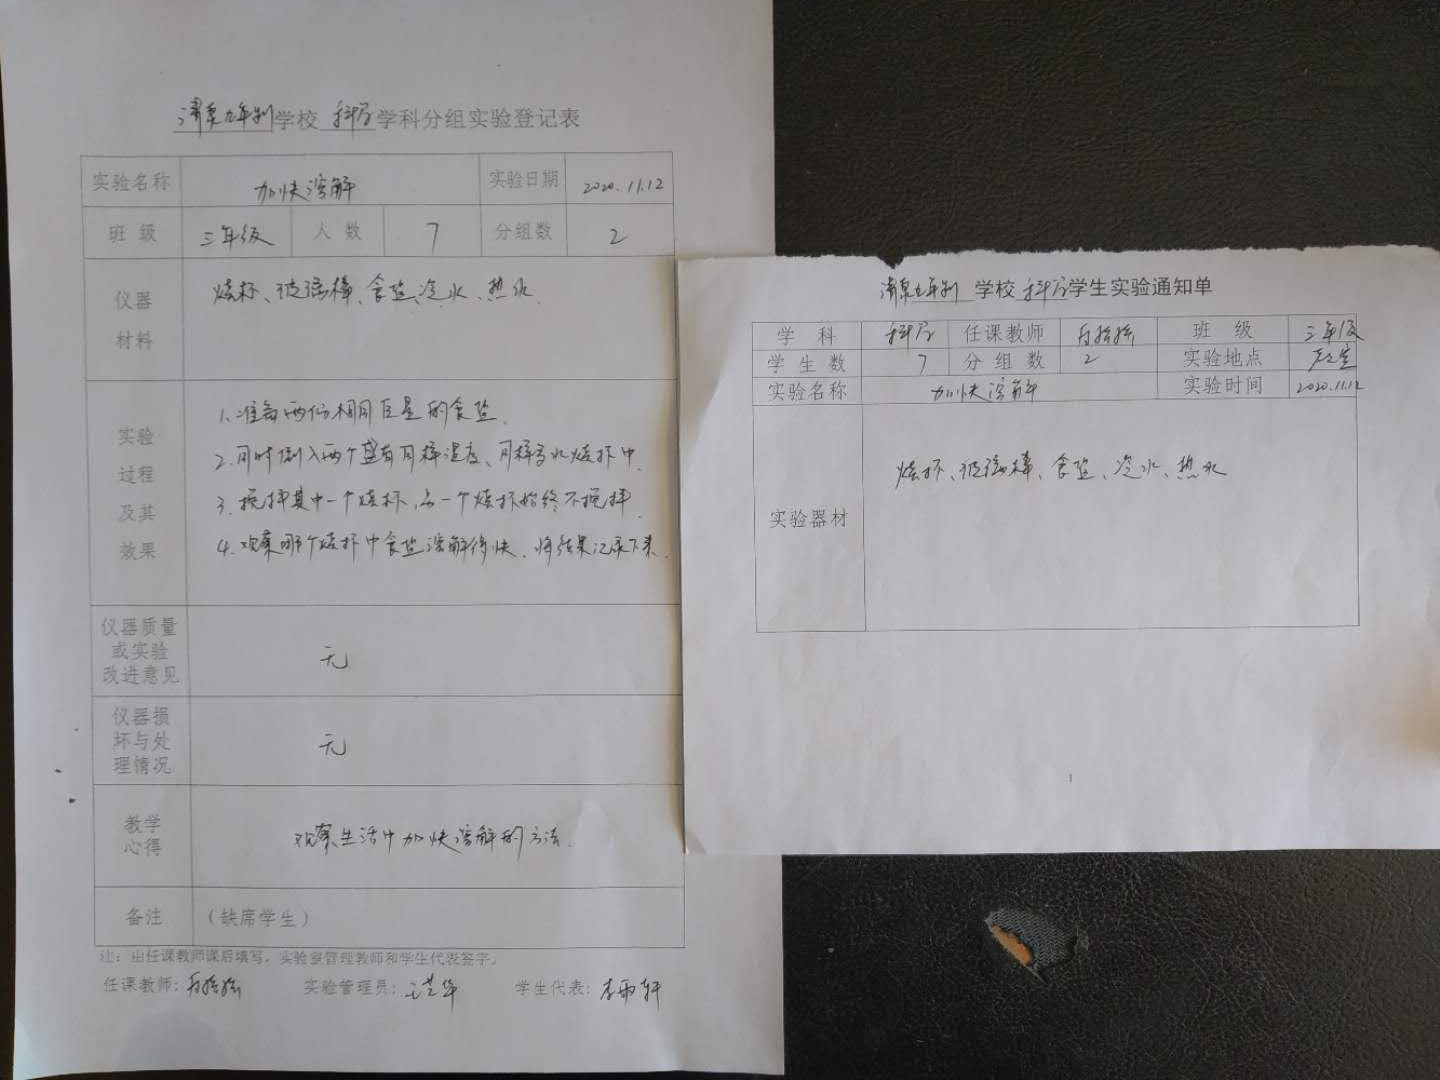 清泉九年制学校 科学 学科分组实验登记表
实验名称 加快溶解 实验日期 2020.11.12
班 级 三年级 人 数 7 分组数 2
仪器材料 烧杯、玻璃棒、食盐、冷水、热水.
实验过程及其效果
1.准备两份相同 的食盐.
2.同时倒入两个盛有同样温度、同样多水烧杯中.
3.搅拌其中一个烧杯,另一个烧杯始终不搅拌.
4.观察哪个烧杯中食盐溶解得快.将结果记录下来.
仪器质量或实验改进意见 无
仪器损坏与处理情况 无
教学心得 观察生活中加快溶解的方法.
备注 (缺席学生)
注:由任课教师课后填写,实验室管理教师和学生代表签字。
任课教师: 实验管理员: 学生代表:李雨轩
清泉九年制 学校 科学 学生实验通知单
学 科 科学 任课教师 班 级 三年级
学 生 数 7 分 组 数 2 实验地点
实验名称 加快溶解 实验时间 2020.11.12
实验器材 烧杯、玻璃棒、食盐、冷水、热水
1